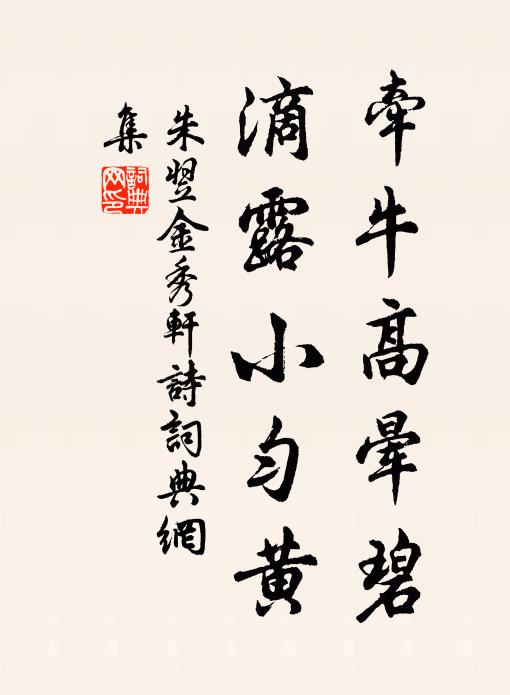 牽牛高暈碧
滴露小勻黃
朱翌金秀軒詩詞典網
集
詞典網印